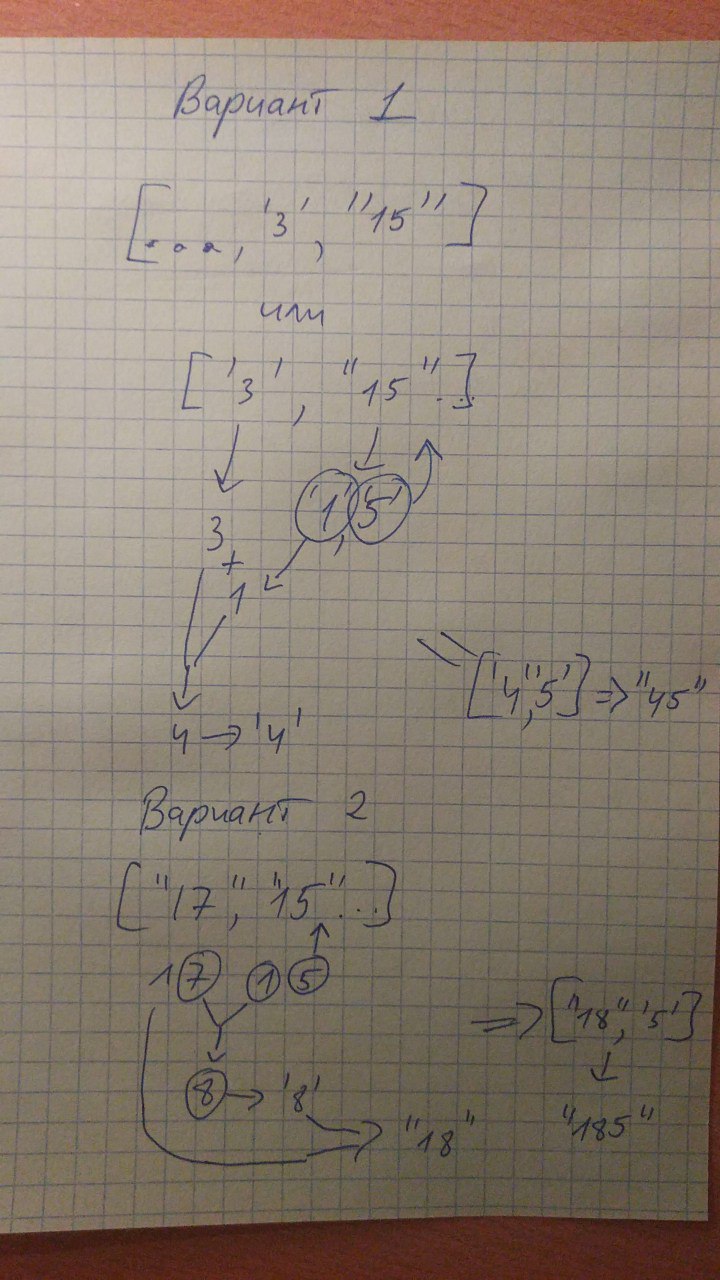 Вариант 1
[..., '3', "15"]
или
['3', "15"...]
'1', '5'
3
+
1
4 → '4'
['4','5'] => "45"
Вариант 2
["17", "15"...]
17 15
=> ["18", '5']
8 → '8'
"18"
"185"